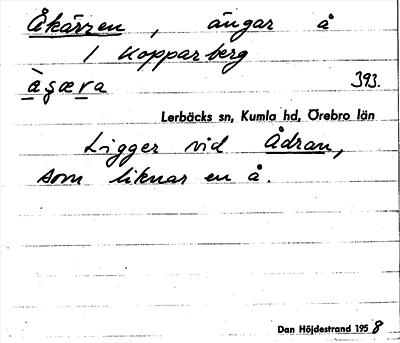 Åkärren, ängar å
1 Kopparberg
393.
Lerbäcks sn, Kumla hd, Örebro län
Ligger vid Ådran,
som liknar en å.
Dan Höjdestrand 1958